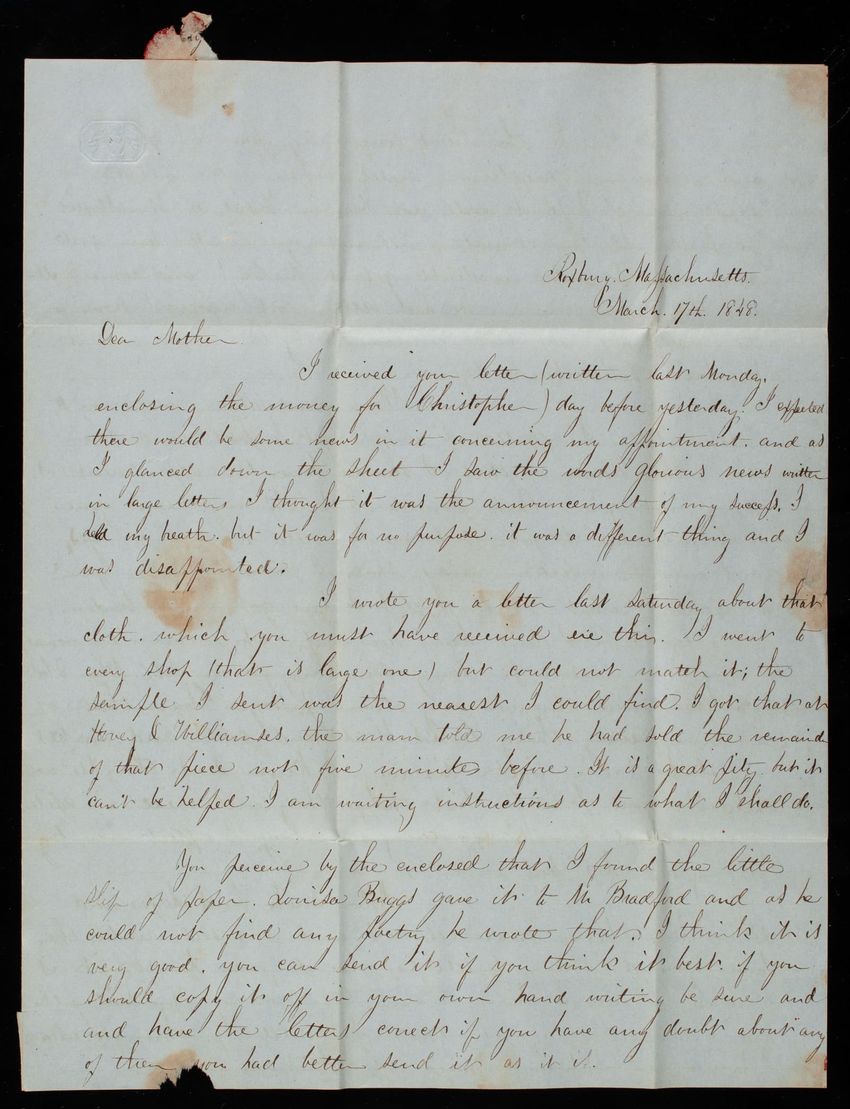 Roxbury. Massachusetts.
March. 17th. 1848.
Dear Mother.
I received your letter (written last Monday.
enclosing the money for Christopher) day before yesterday. I expected
there would be some news in it concerning my appointment. and as
I glanced down the sheet I saw the words glorious news written
in large letters I thought it was the announcement of my success. I
held my breath. but it was for no purpose. it was a different thing and I
was disappointed.
I wrote you a letter last saturday about that
cloth. which you must have received ere this. I went to
every shop (that is large one) but could not match it; the
sample I sent was the nearest I could find. I got that at
Hovey & Williamses. the man told me he had sold the remaind
of that piece not five minutes before. It is a great pity. but it
can't be helped. I am waiting instructions as to what I shall do.
You perceive by the enclosed that I found the little
slip of paper. Louisa Buggs gave it to Mr Bradford and as he
could not find any poetry he wrote that. I think it is
very good. you can send it if you think it best. if you
should copy it off in your own hand writing be sure and
and have the letters correct if you have any doubt about any
of them you had better send it as it is.